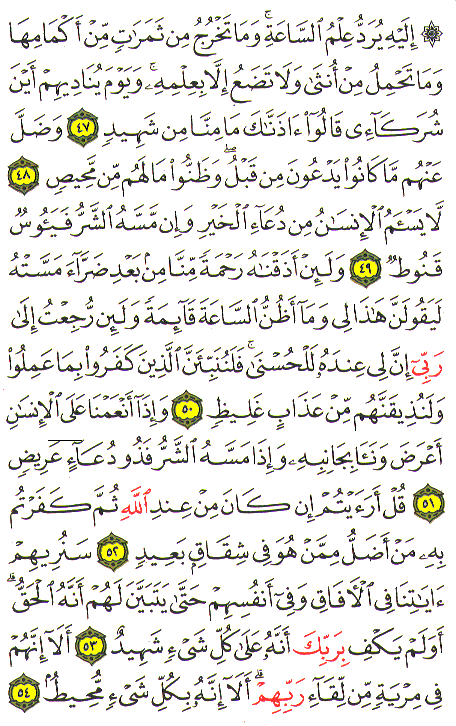 ۞ إِلَيْهِ يُرَدُّ عِلْمُ ٱلسَّاعَةِ ۚ وَمَا تَخْرُجُ مِن ثَمَرَٰتٍ مِّنْ أَكْمَامِهَا
وَمَا تَحْمِلُ مِنْ أُنثَىٰ وَلَا تَضَعُ إِلَّا بِعِلْمِهِۦ ۚ وَيَوْمَ يُنَادِيهِمْ أَيْنَ
شُرَكَآءِى قَالُوٓا۟ ءَاذَنَّٰكَ مَا مِنَّا مِن شَهِيدٍ ٤٧ وَضَلَّ
عَنْهُم مَّا كَانُوا۟ يَدْعُونَ مِن قَبْلُ ۖ وَظَنُّوا۟ مَا لَهُم مِّن مَّحِيصٍ ٤٨
لَّا يَسْـَٔمُ ٱلْإِنسَٰنُ مِن دُعَآءِ ٱلْخَيْرِ وَإِن مَّسَّهُ ٱلشَّرُّ فَيَـُٔوسٌ
قَنُوطٌ ٤٩ وَلَئِنْ أَذَقْنَٰهُ رَحْمَةً مِّنَّا مِنۢ بَعْدِ ضَرَّآءَ مَسَّتْهُ
لَيَقُولَنَّ هَٰذَا لِى وَمَآ أَظُنُّ ٱلسَّاعَةَ قَآئِمَةً وَلَئِن رُّجِعْتُ إِلَىٰ
رَبِّىٓ إِنَّ لِى عِندَهُۥ لَلْحُسْنَىٰ ۚ فَلَنُنَبِّئَنَّ ٱلَّذِينَ كَفَرُوا۟ بِمَا عَمِلُوا۟
وَلَنُذِيقَنَّهُم مِّنْ عَذَابٍ غَلِيظٍ ٥٠ وَإِذَآ أَنْعَمْنَا عَلَى ٱلْإِنسَٰنِ
أَعْرَضَ وَنَـَٔا بِجَانِبِهِۦ وَإِذَا مَسَّهُ ٱلشَّرُّ فَذُو دُعَآءٍ عَرِيضٍ
٥١ قُلْ أَرَءَيْتُمْ إِن كَانَ مِنْ عِندِ ٱللَّهِ ثُمَّ كَفَرْتُم
بِهِۦ مَنْ أَضَلُّ مِمَّنْ هُوَ فِى شِقَاقٍۭ بَعِيدٍ ٥٢ سَنُرِيهِمْ
ءَايَٰتِنَا فِى ٱلْءَافَاقِ وَفِىٓ أَنفُسِهِمْ حَتَّىٰ يَتَبَيَّنَ لَهُمْ أَنَّهُ ٱلْحَقُّ ۗ
أَوَلَمْ يَكْفِ بِرَبِّكَ أَنَّهُۥ عَلَىٰ كُلِّ شَىْءٍ شَهِيدٌ ٥٣ أَلَآ إِنَّهُمْ
فِى مِرْيَةٍ مِّن لِّقَآءِ رَبِّهِمْ ۗ أَلَآ إِنَّهُۥ بِكُلِّ شَىْءٍ مُّحِيطٌۢ ٥٤